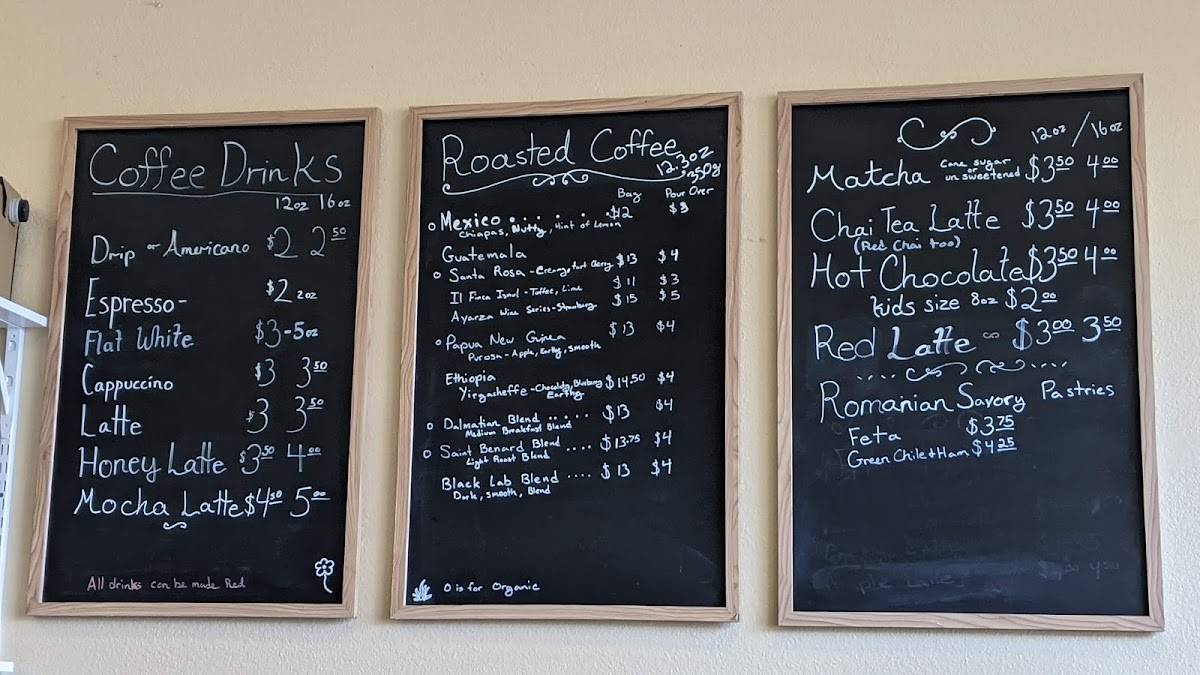 Coffee Drinks
12oz 16oz
Drip or Americano $2 2.50
Espresso- $2 2oz
Flat White $3-5oz
Cappuccino $3 3.50
Latte $3 3.50
Honey Latte $3.50 4.00
Mocha Latte $4.50 5.00
All drinks can be made Red
Roasted Coffee
12.3oz
350g
Bag Pour Over
o Mexico . . . . . . $12 $3
Chiapas, Nutty, Hint of Lemon
Guatemala
o Santa Rosa - Creamy, tart Cherry $13 $4
Il Finca Isnul - Toffee, Lime $11 $3
Ayarza Wine Series - Strawberry $15 $5
o Papua New Guinea $13 $4
Purosa - Apple, Earthy, Smooth
Ethiopia
Yirgacheffe - Chocolate, Blueberry $14.50 $4
Earthy
o Dalmatian Blend ..... $13 $4
Medium Breakfast Blend
o Saint Benard Blend .... $13.75 $4
Light Roast Blend
Black Lab Blend .... $13 $4
Dark, smooth, Blend
O is for Organic
12oz / 16oz
Matcha Cane sugar or unsweetened $3.50 4.00
Chai Tea Latte $3.50 4.00
(Red Chai too)
Hot Chocolate $3.50 4.00
kids size 8oz $2.00
Red Latte $3.00 3.50
Romanian Savory Pastries
Feta $3.75
Green Chile + Ham $4.25